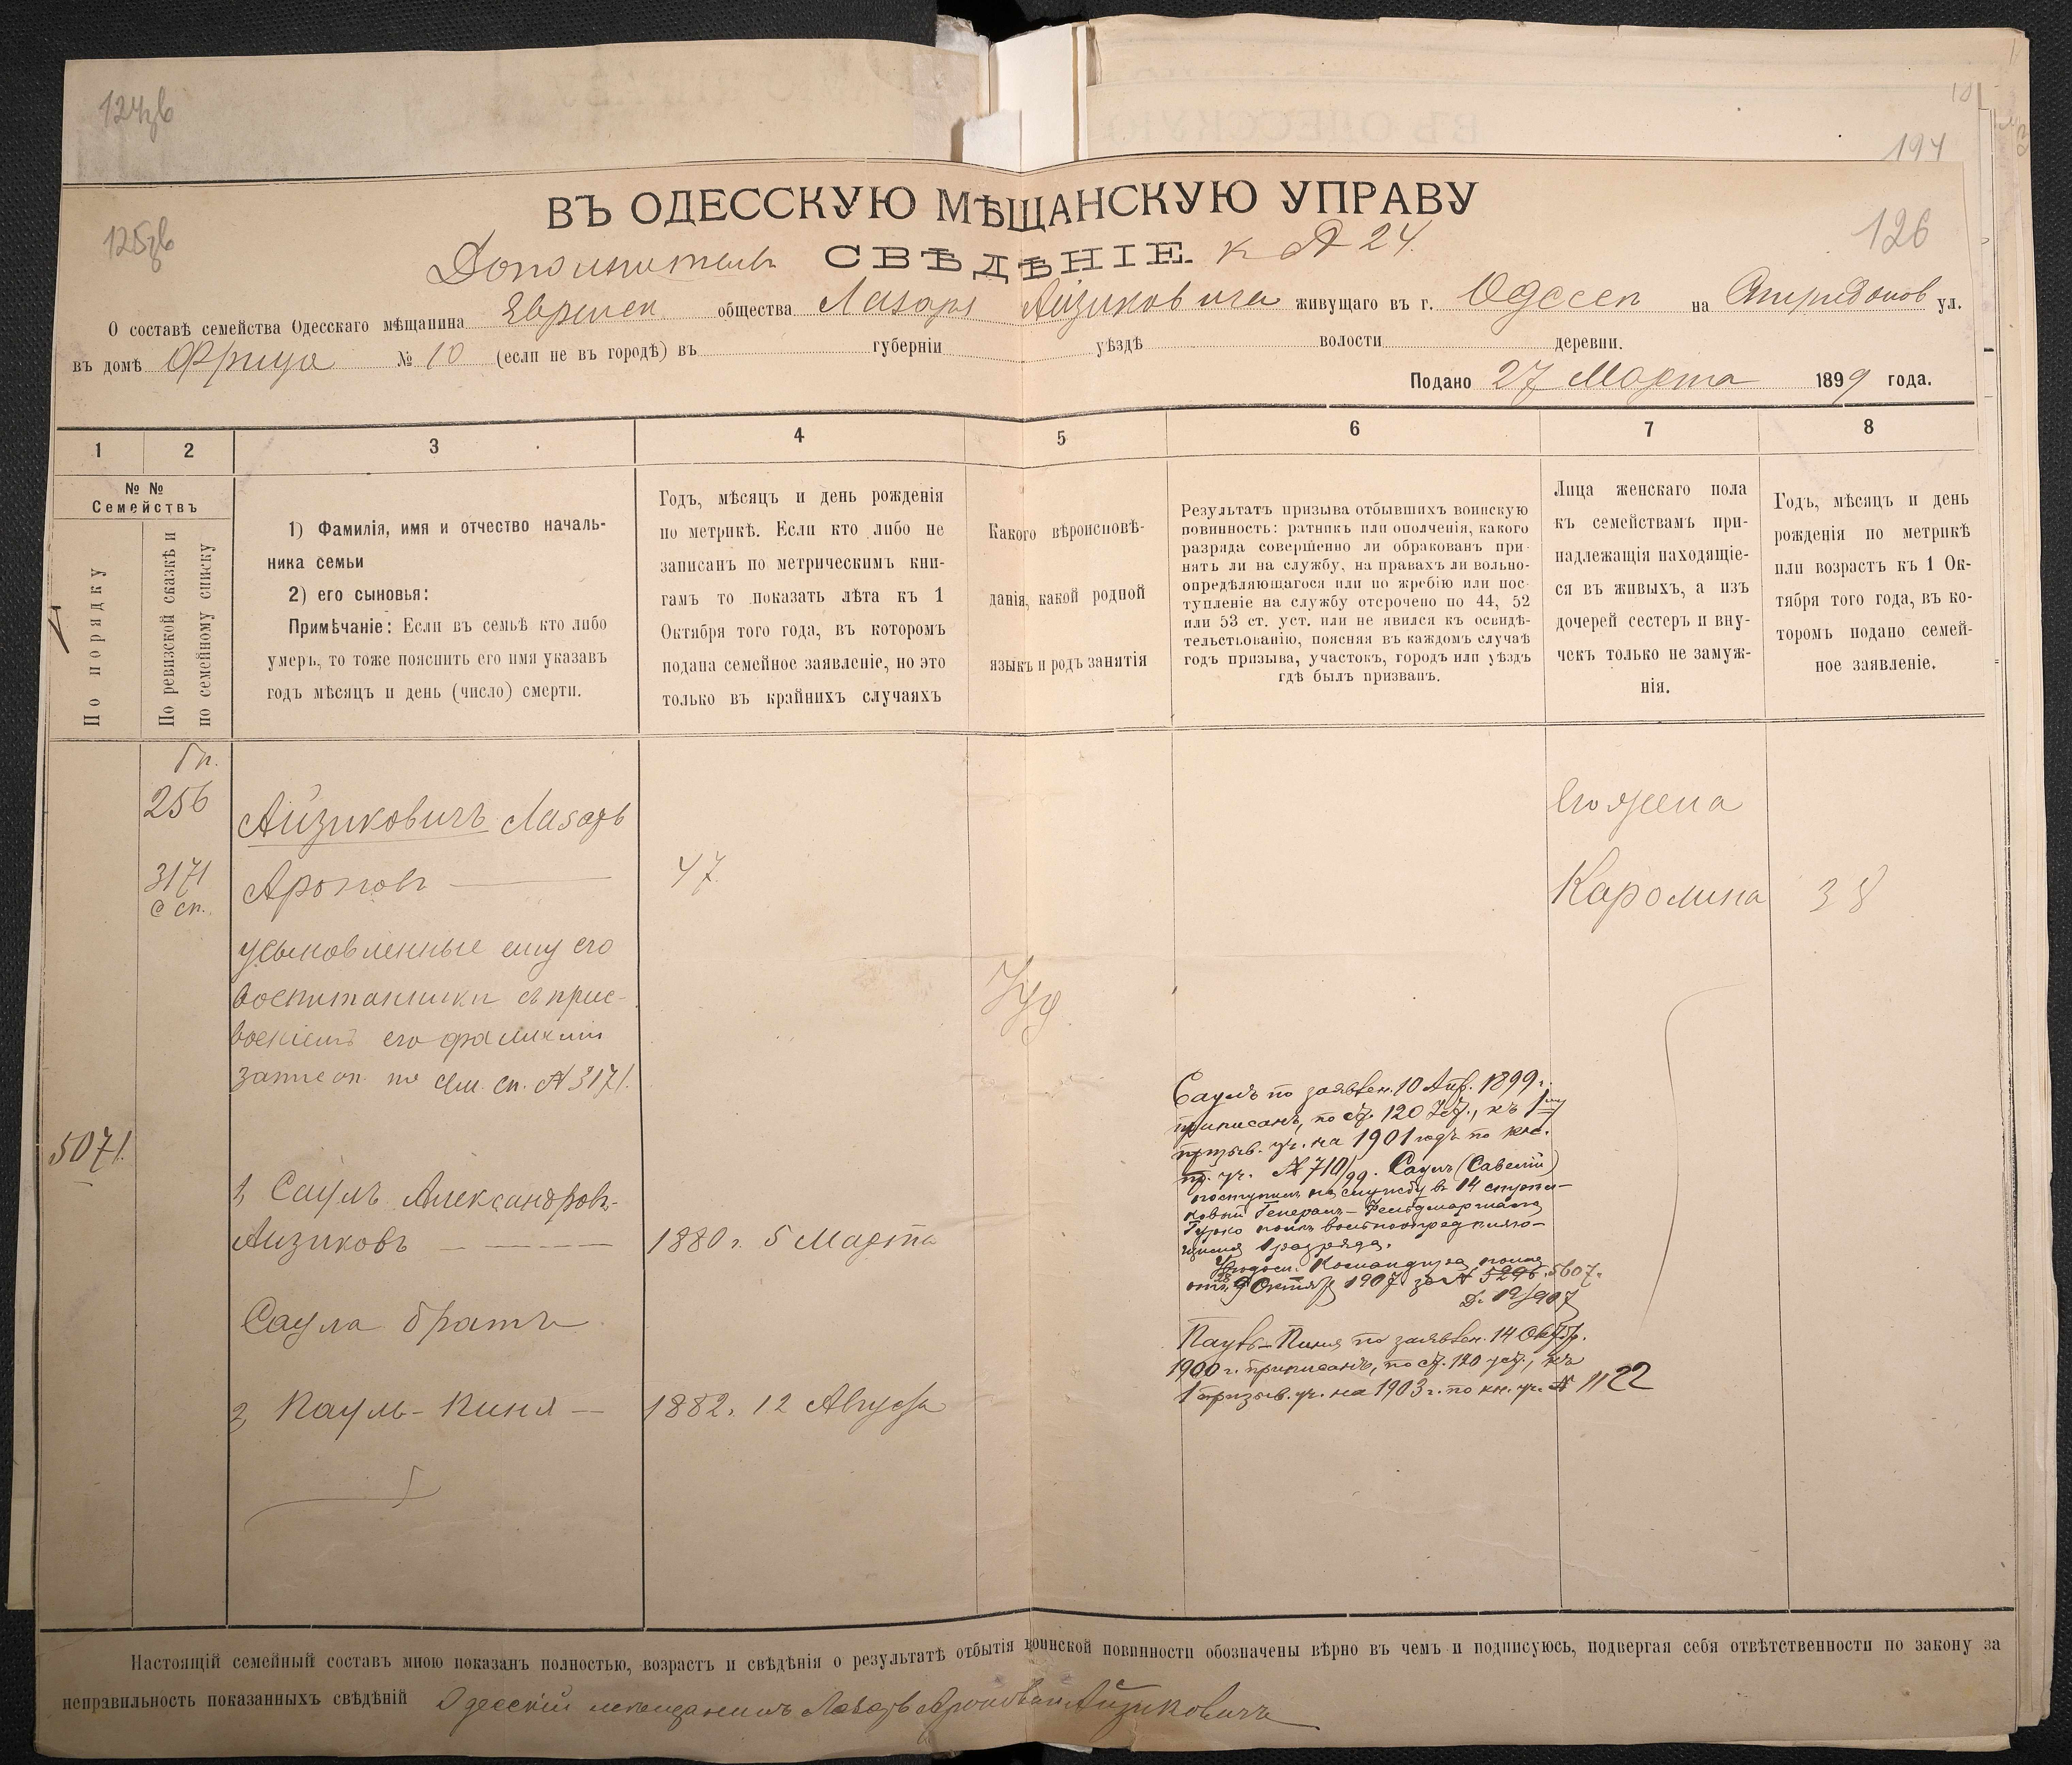 124зв
194
125зв
126
ВЪ ОДЕССКУЮ МѢЩАНСКУЮ УПРАВУ
Дополнительн СВѢДѢНІЕ к № 24.
О составѣ семейства Одесскаго мѣщанина Евреиск общества Лазаря Айзиковича живущаго въ г. Одессѣ на Спиридонов ул.
въ домѣ Фрица № 10 (если не въ городѣ) въ губерніи уѣздѣ волости деревни.
Подано 27 Марта 1899 года.
1 2 3 4 5 6 7 8
№ №
Семействъ
По порядку
По ревизской сказкѣ и
по семейному списку
1) Фамилія, имя и отчество началь-
ника семьи
2) его сыновья:
Примѣчаніе: Если въ семьѣ кто либо
умеръ, то тоже пояснить его имя указавъ
годъ мѣсяцъ и день (число) смерти.
Годъ, мѣсяцъ и день рожденія
по метрикѣ. Если кто либо не
записанъ по метрическимъ кни-
гамъ то показать лѣта къ 1
Октября того года, въ которомъ
подана семейное заявленіе, но это
только въ крайнихъ случаяхъ
Какого вѣроисповѣ-
данія, какой родной
языкъ и родъ занятія
Результатъ призыва отбывшихъ воинскую
повинность: ратникъ или ополченія, какого
разряда совершенно ли обракованъ при-
нятъ ли на службу, на правахъ ли вольно-
опредѣляющагося или по жребію или пос-
тупленіе на службу отсрочено по 44, 52
или 53 ст. уст. или не явился къ освидѣ-
тельствованію, поясняя въ каждомъ случаѣ
годъ призыва, участокъ, городъ или уѣздъ
гдѣ былъ призванъ.
Лица женскаго пола
къ семействамъ при-
надлежащія находящіе-
ся въ живыхъ, а изъ
дочерей сестеръ и вну-
чекъ только не замуж-
нія.
Годъ, мѣсяцъ и день
рожденія по метрикѣ
или возрастъ къ 1 Ок-
тября того года, въ ко-
торомъ подано семей-
ное заявленіе.
256
Айзиковичъ Лазарь
Его жена
3171
с сп.
Ароновъ 47
Каролина 38
усыновленные ему его
воспитанники съ прис-
военіемъ его фамиліи
записан. по сем. сп. № 3171.
Іуд.
5071.
1, Саулъ Александровъ-
Аизиковъ 1880 г. 5 Марта
Саула братъ
2, Пауль-Пиня 1882. 12 Августа
Саулъ по заявлен. 10 Апр. 1899 г.
приписанъ, по ст. 120 Уст., къ 1му
призыв. уч. на 1901 годъ по кн.
пр. уч. № 710/99. Саулъ (Савелій)
поступилъ на службу в 14 стрѣл-
ковый Генералъ-Фельдмаршала
Гурко полкъ вольноопредѣляю-
щимся 1 разряда.
Удостов. Командира полка
отъ 9 Октября 1907 за № 5296. 5607.
Д. 19/907
Пауль-Пиня по заявлен. 14 Октбр.
1900 г. приписанъ, по ст. 120 уст., къ
1 призыв. уч. на 1903 г. по кн. уч. № 1122
Настоящій семейный составъ мною показанъ полностью, возрастъ и свѣдѣнія о результатѣ отбытія воинской повинности обозначены вѣрно въ чемъ и подписуюсь, подвергая себя отвѣтственности по закону за
неправильность показанныхъ свѣдѣній Одесскій мѣщанинъ Лазарь Ароновъ Айзиковичъ